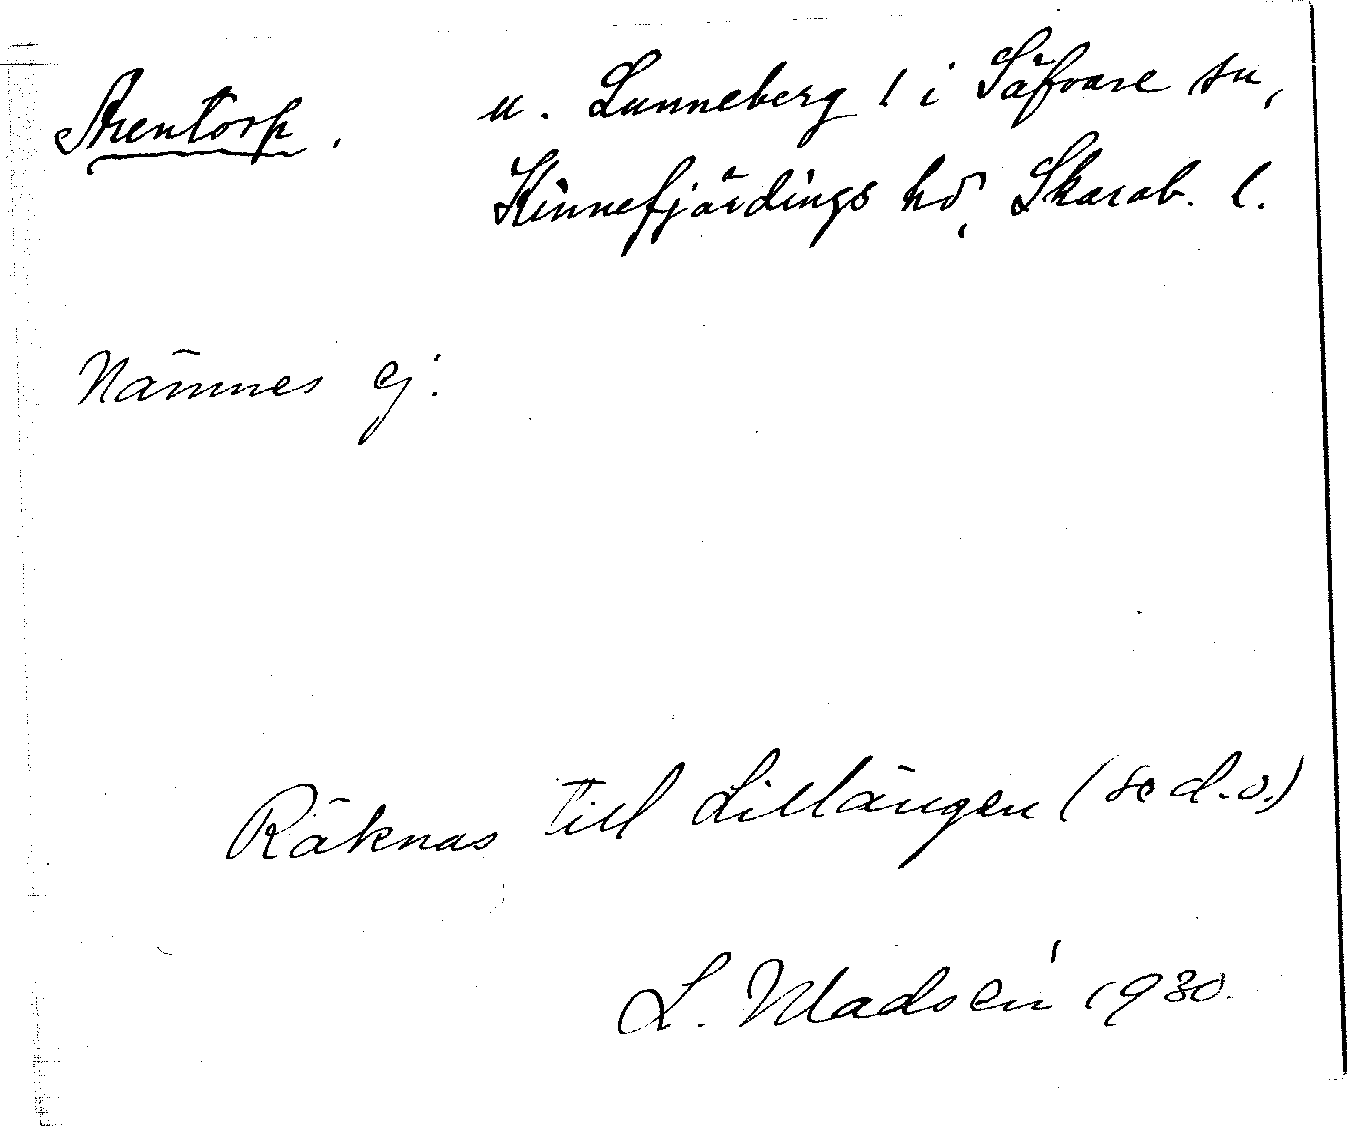 Arentorp.
u. Lunneberg 1 i Säfvare sn,
Kinnefjärdings hd, Skarab. l.
Nämnes ej.
Räknas till Lillängen (se d.o.)
L. Madsén 1930.